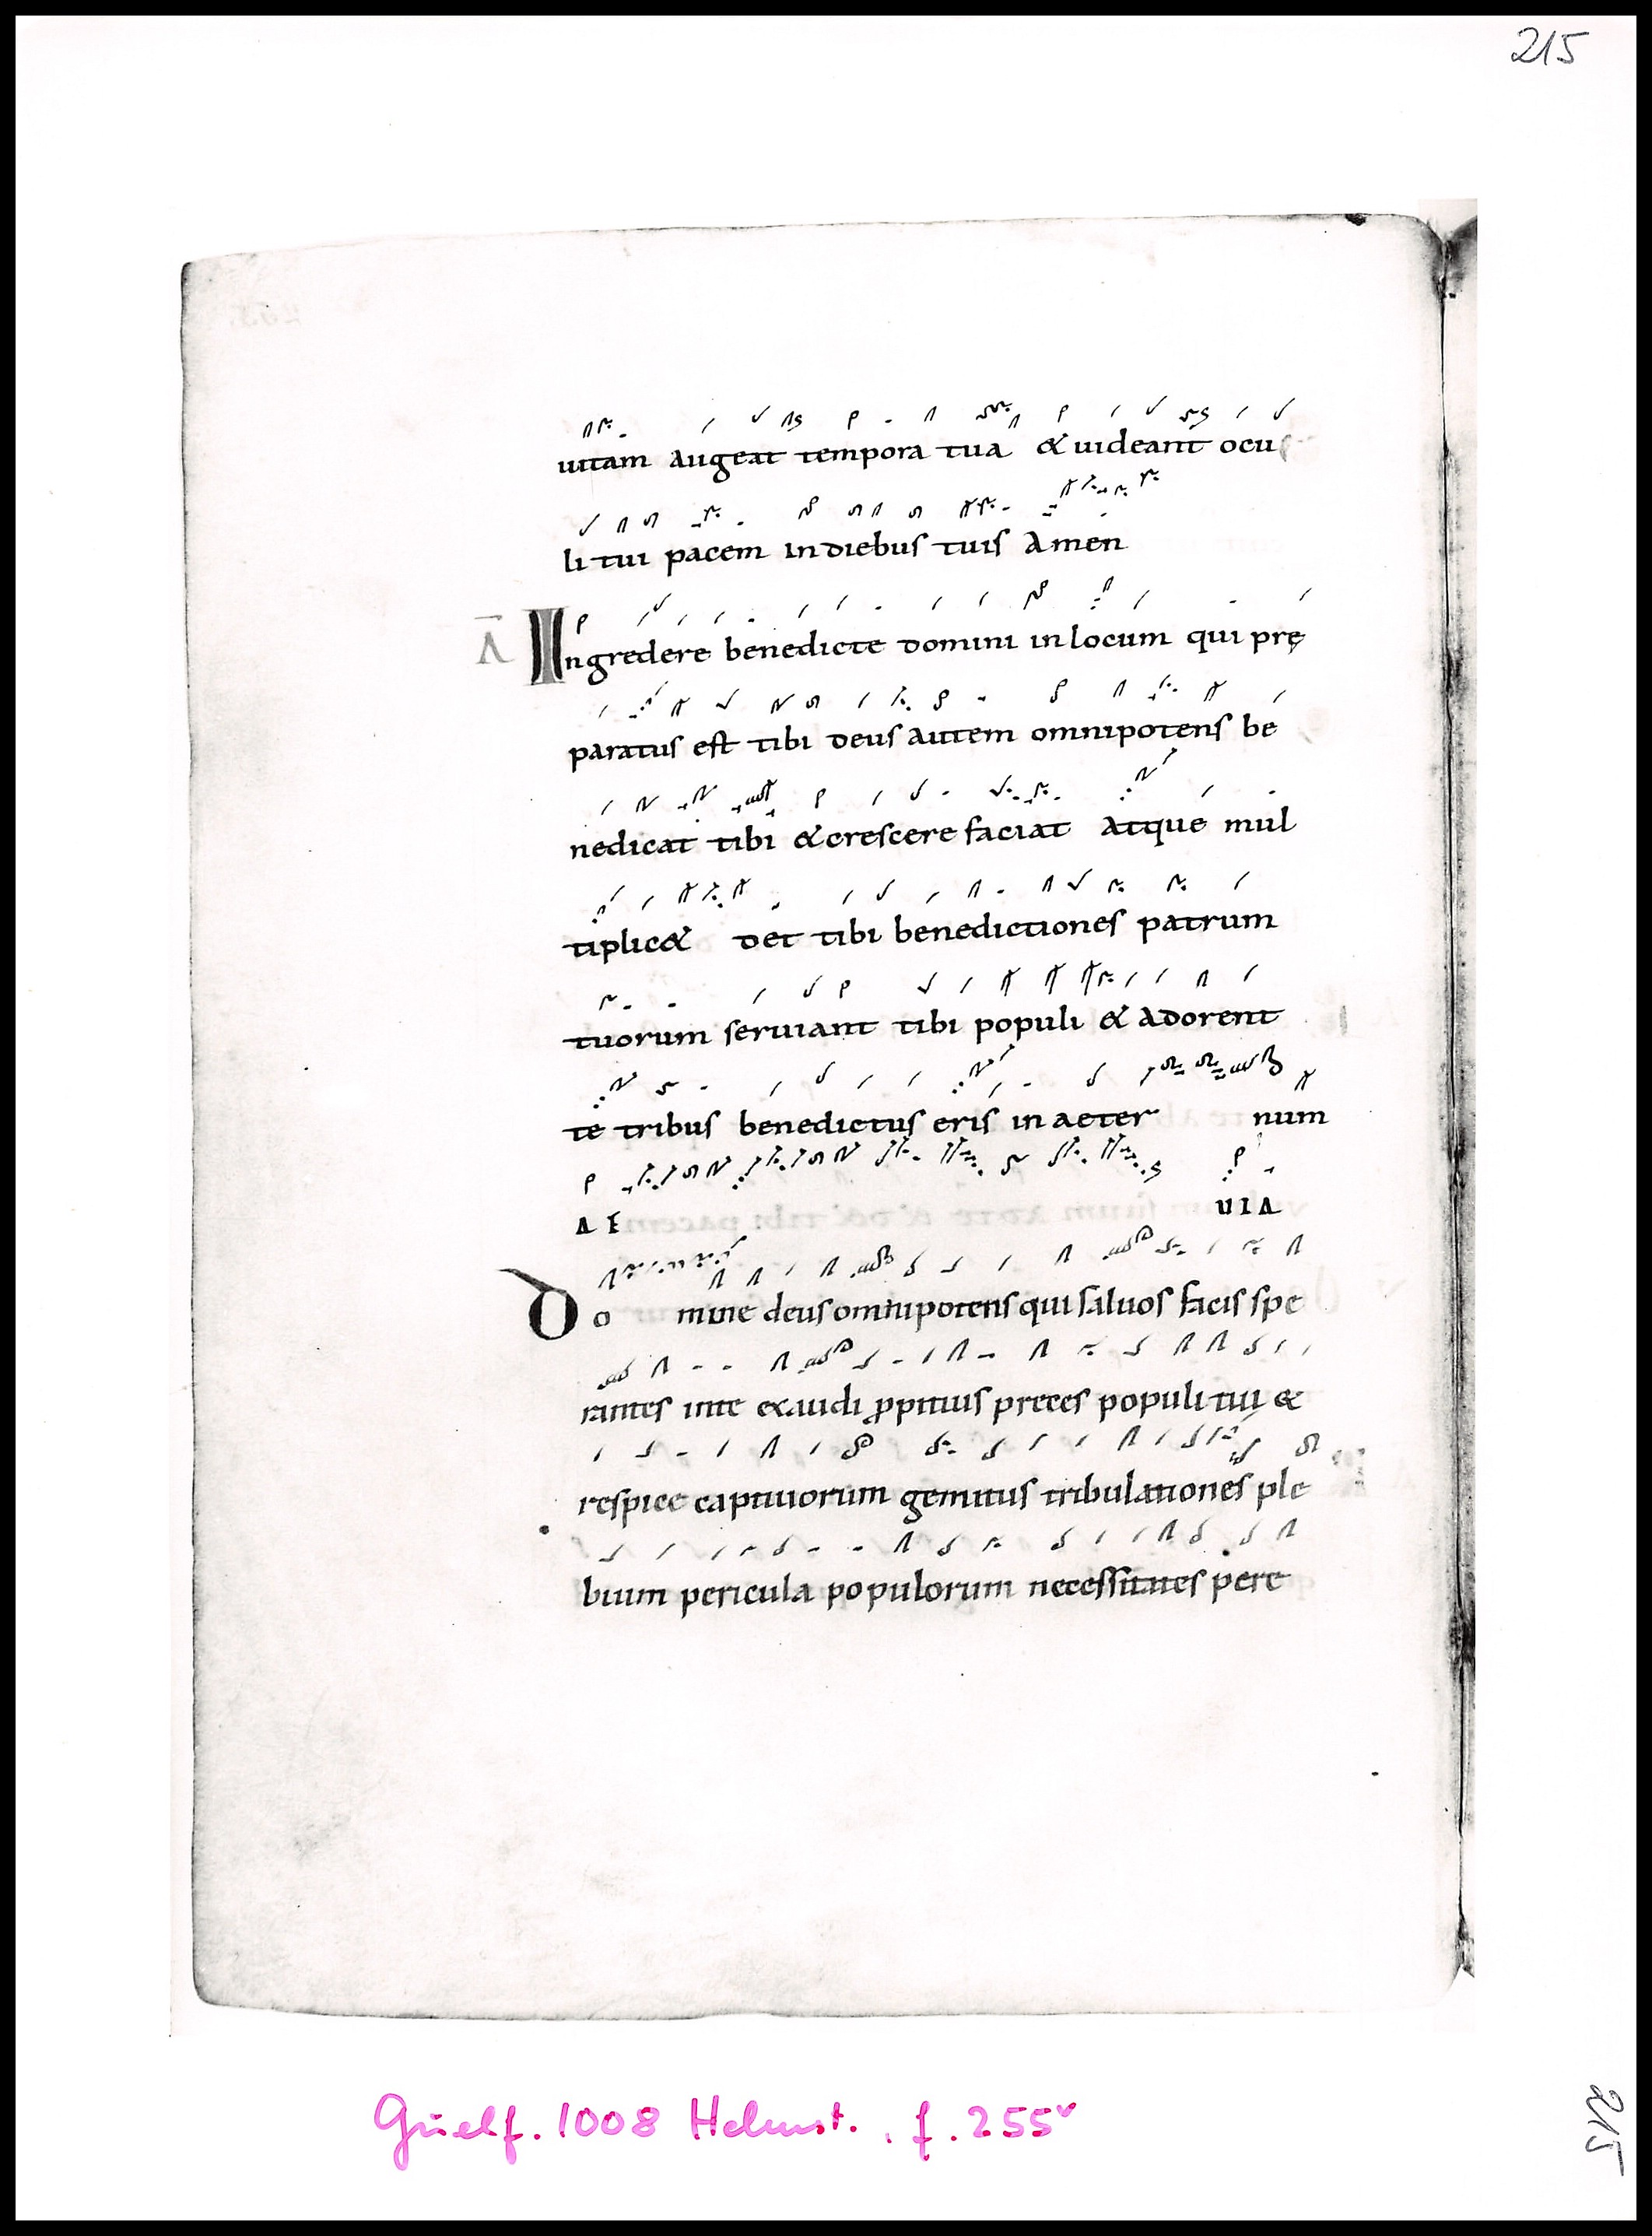 215
uitam augeat tempora tua & uideant ocu
li tui pacem in diebus tuis Amen
A Ingredere benedicte domini in locum qui prę
paratus est tibi deus autem omnipotens be
nedicat tibi & crescere faciat Atque mul
tiplic& det tibi benedictiones patrum
tuorum seruiant tibi populi & adorent
te tribus benedictus eris in aeter num
AE UIA
Do mine deus omnipotens qui saluos facis spe
rantes in te exaudi ꝓpitius preces populi tui &
respice captiuorum gemitus tribulationes ple
bium pericula populorum necessitates pere
Guelf. 1008 Helmst. , f. 255v
215